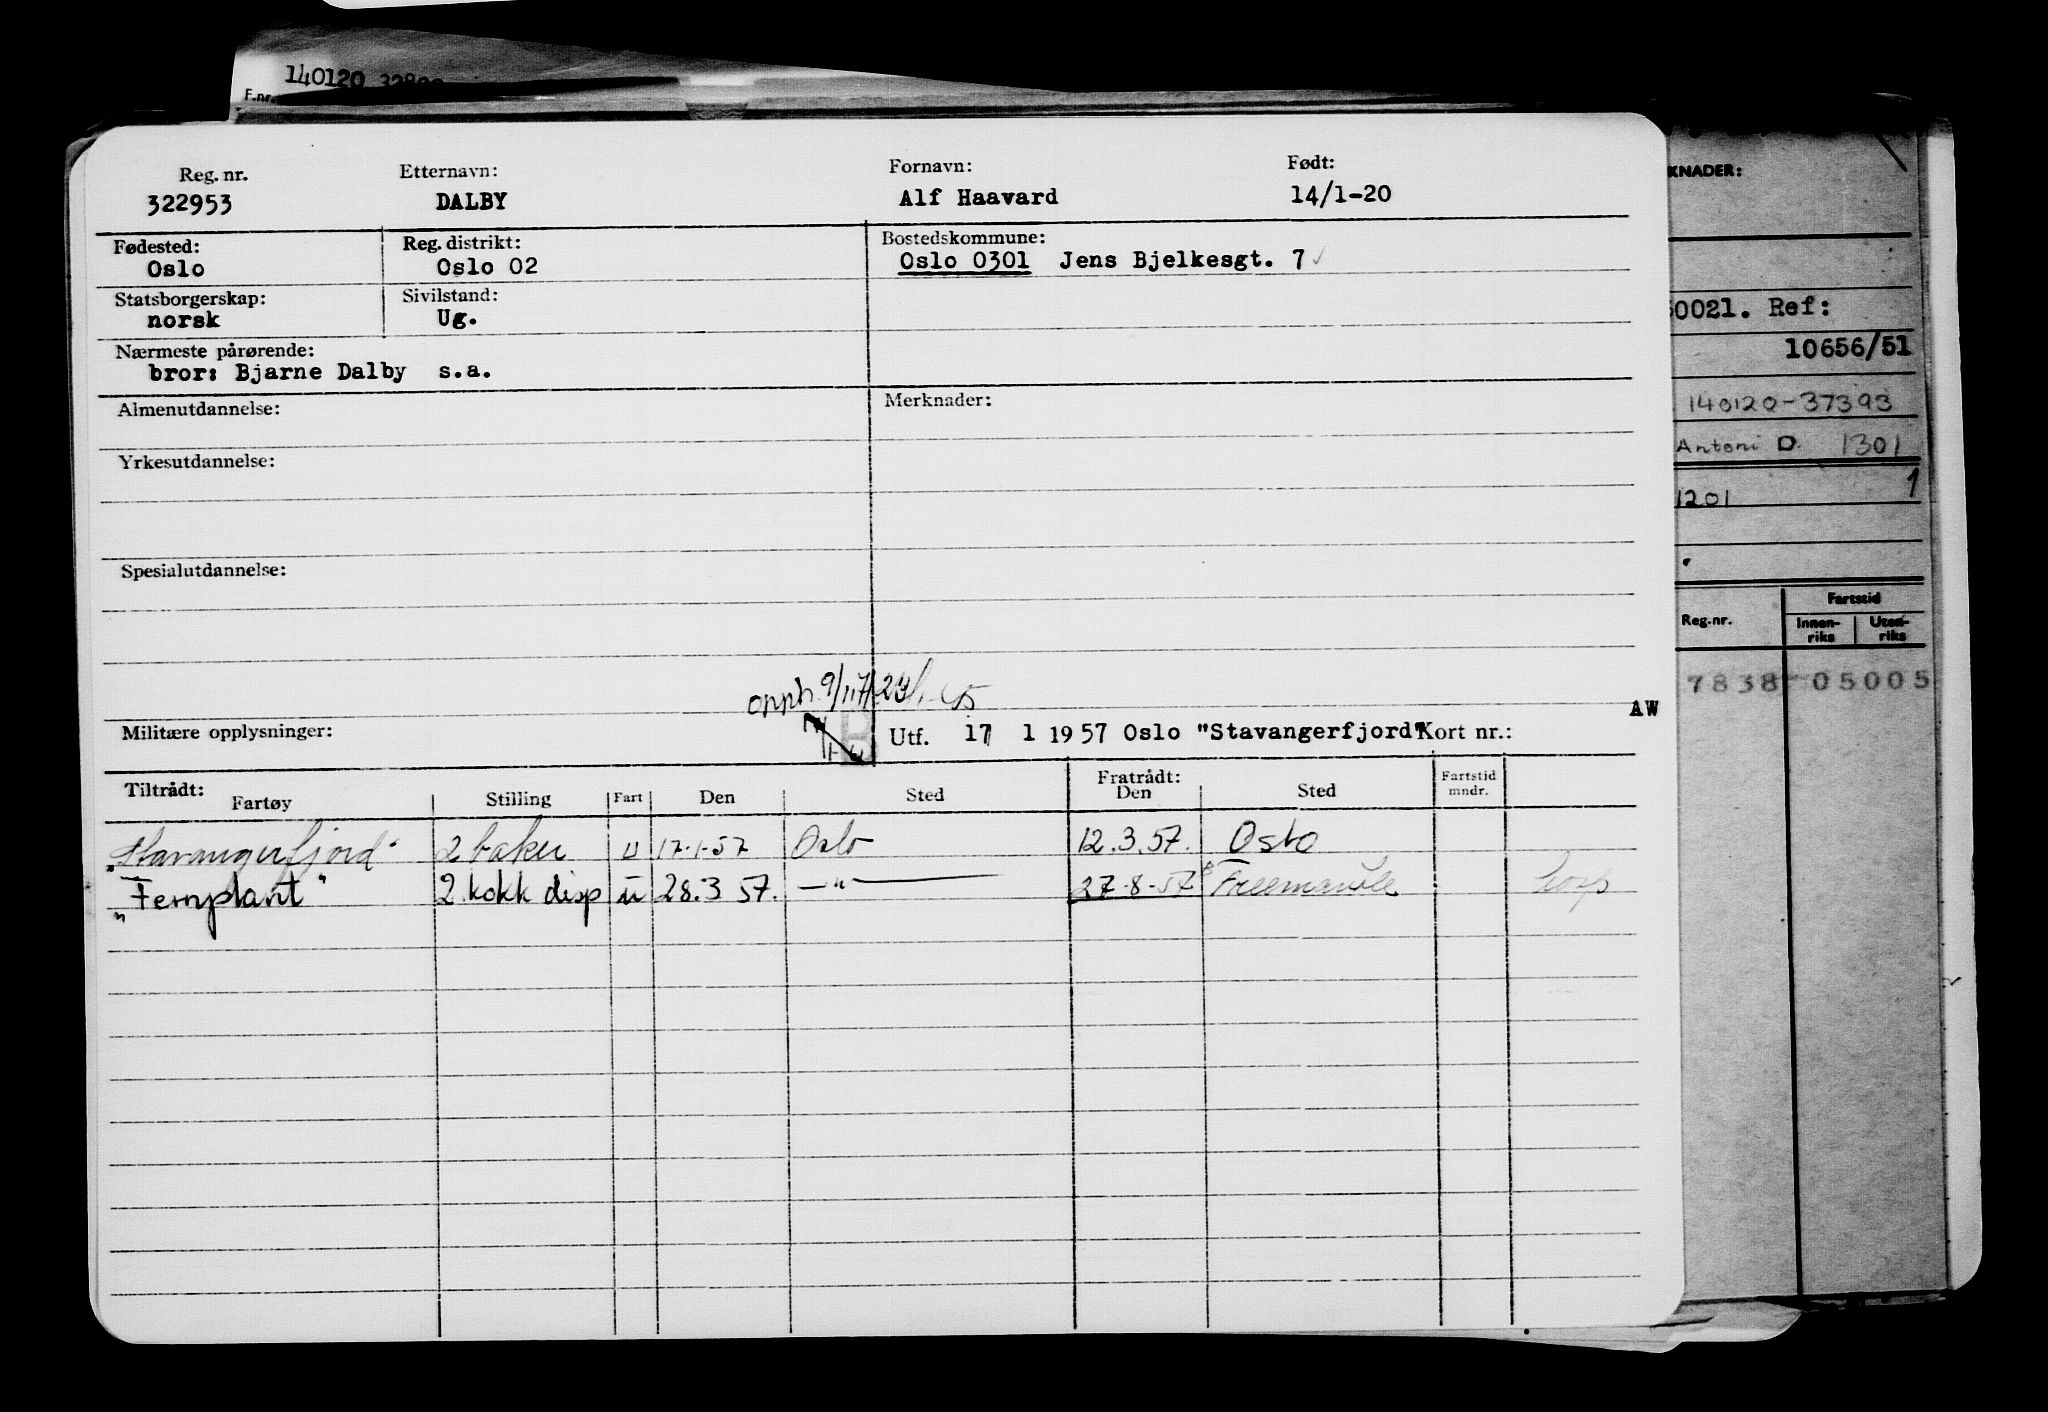 140120
F.nr.
Reg. nr. Etternavn: Fornavn: Født:
322953 DALBY Alf Haavard 14/1-20
Fødested: Reg. distrikt: Bostedskommune:
Oslo Oslo 02 Oslo 0301 Jens Bjelkesgt. 7
Statsborgerskap: Sivilstand:
norsk Ug.
Nærmeste pårørende:
bror: Bjarne Dalby s.a.
Almenutdannelse: Merknader:
Yrkesutdannelse:
Spesialutdannelse:
opph.
AW
Militære opplysninger: Utf. 17 1 1957 Oslo "Stavangerfjord" Kort nr.:
Tiltrådt: Fratrådt:
Fartøy Stilling Fart Den Sted Den Sted Fartstid mndr.
"Stavangerfjord" 2 baker u 17-1-57 Oslo 12.3.57. Oslo
"Fernplant" 2 kokk disp u 28.3 57. —"— 27-8-57 Freemantle
KNADER:
0021. Ref:
10656/51
140120-37393
Antoni D. 1301
1201 1
Reg.nr. Fartstid
Innen-riks Uten-riks
7838 05005